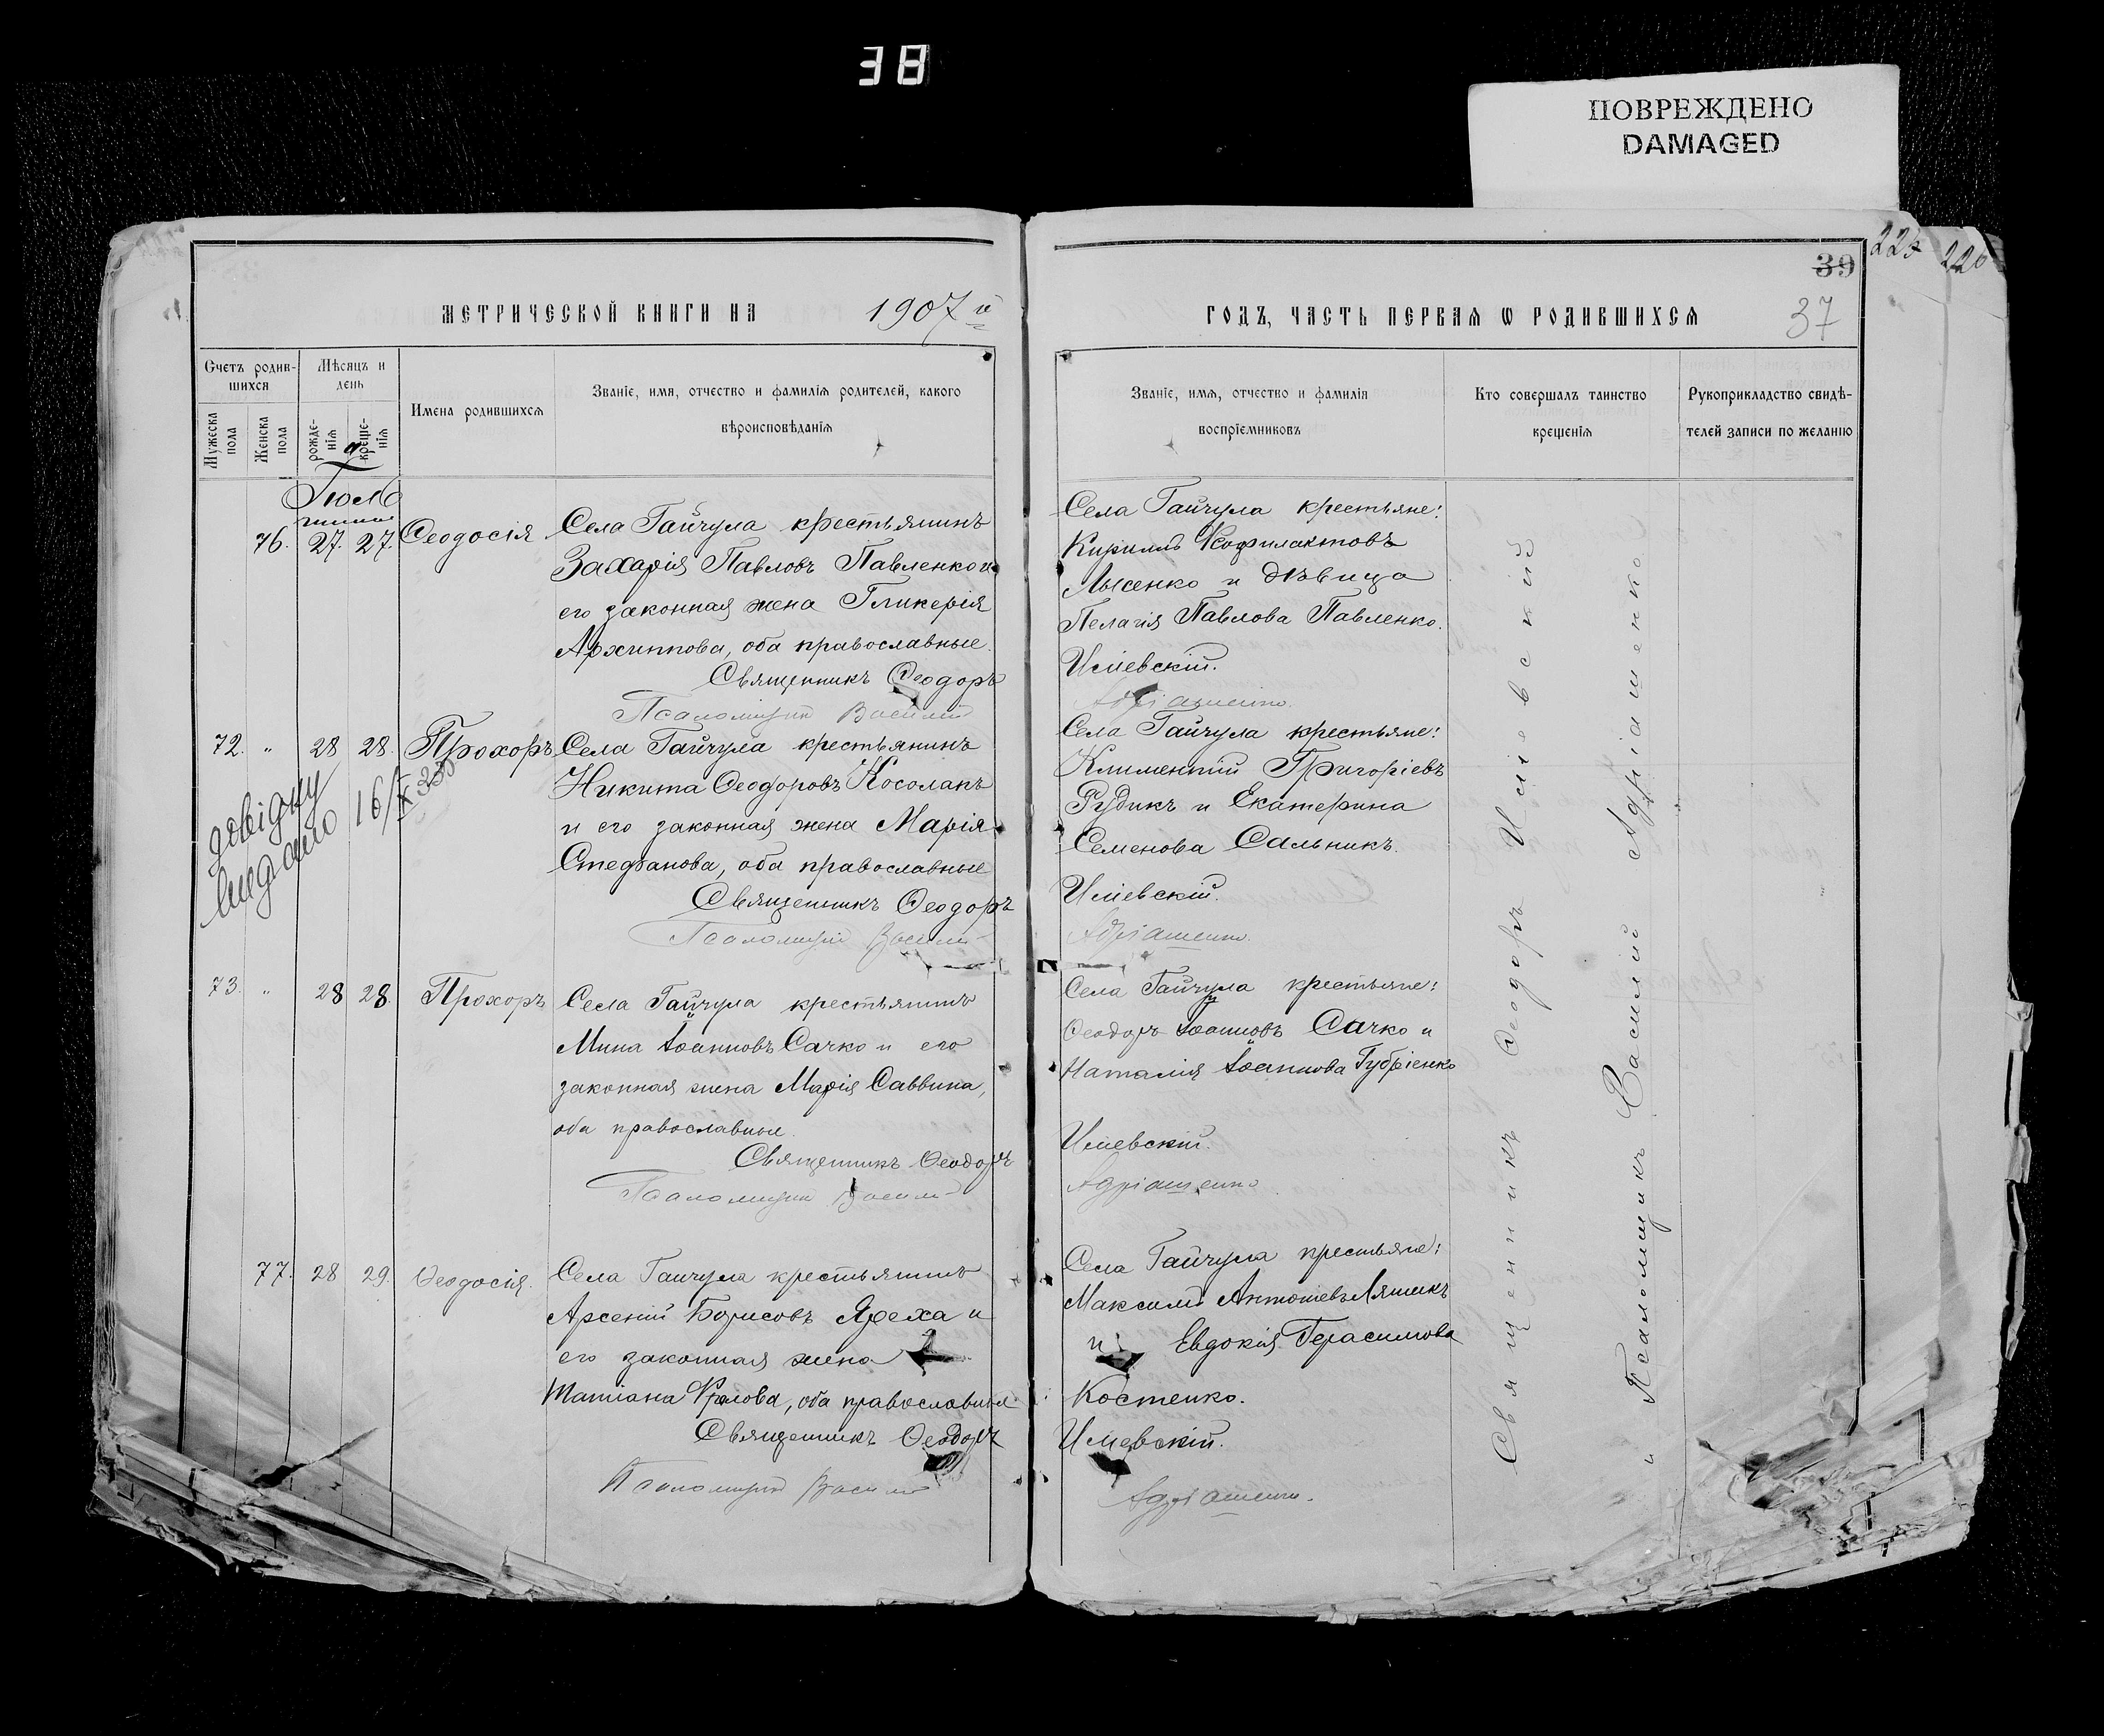 38
ПОВРЕЖДЕНО
DAMAGED
223
220
39
37
МЕТРИЧЕСКОЙ КНИГИ НА 1907 й
ГОДЪ, ЧАСТЬ ПЕРВАЯ Ѡ РОДИВШИХСЯ
Счетъ родив-
шихся
Мужеска пола
Женска пола
Мѣсяцъ и
день
рожде-
нія
креще-
нія
Имена родившихся
Званіе, имя, отчество и фамилія родителей, какого
вѣроисповѣданія
Званіе, имя, отчество и фамилія
воспріемниковъ
Кто совершалъ таинство
крещенія
Рукоприкладство свидѣ-
телей записи по желанію
Іюля
76. 27. 27. Ѳеодосія
Села Гайчула крестьянинъ
Захарія Павловъ Павленко и
его законная жена Гликерія
Архиппова, оба православные.
Священникъ Ѳеодоръ
Псаломщикъ Василій
Села Гайчула крестьяне:
Кириллъ Ѳеофилактовъ
Лысенко и дѣвица
Пелагія Павлова Павленко.
Ильевскій.
Адріашенко.
72. " 28 28. Прохоръ
Села Гайчула крестьянинъ
Никита Ѳеодоровъ Косолапъ
и его законная жена Марія
Стефанова, оба православные
Священникъ Ѳеодоръ
Псаломщикъ Василій
довідку
видано 16/X
Села Гайчула крестьяне:
Климентій Григоріевъ
Рудикъ и Екатерина
Семенова Сальникъ.
Ильевскій.
Адріашенко.
73. " 28 28. Прохоръ
Села Гайчула крестьянинъ
Мина Іоанновъ Сачко и его
законная жена Марія Саввина,
оба православные.
Священникъ Ѳеодоръ
Псаломщикъ Василій
Села Гайчула крестьяне:
Ѳеодоръ Іоанновъ Сачко и
Наталія Іоаннова Губріенко
Ильевскій.
Адріашенко
77. 28 29. Ѳеодосія.
Села Гайчула крестьянинъ
Арсеній Борисовъ Яреха и
его законная жена
Татіана Фролова, оба православные
Священникъ Ѳеодоръ
Псаломщикъ Василій
Села Гайчула крестьяне:
Максимъ Антоніевъ Ляшикъ
и Евдокія Герасимова
Костенко.
Ильевскій.
Адріашенко.
Священникъ Ѳеодоръ Ильевскій
и Псаломщикъ Василій Адріашенко